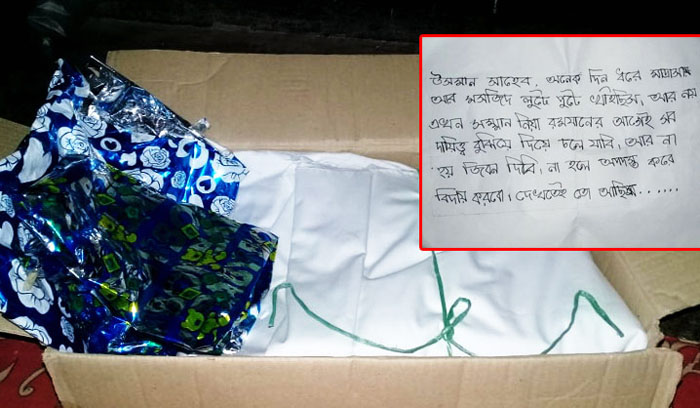 উসমান সাহেব, অনেক দিন ধরে মাদ্রাসা
আর মসজিদে লুটে পুটে খাইছিস, আর নয়
এখন সম্মান নিয়া রমযানের আগেই সব
দায়িত্ব বুঝিয়ে দিয়ে চলে যাবি, আর না
হয় জিবন দিবি, না হলে অপদস্ত করে
বিদায় করবো, দেখতেই তো আছিস......